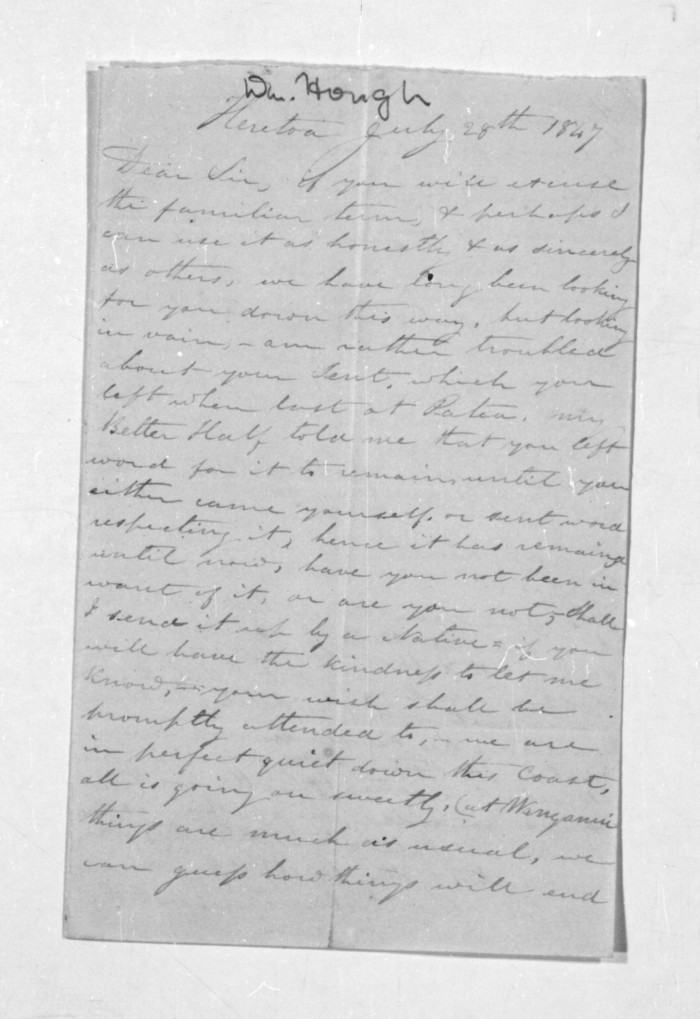 Wm. Hough
Heretoa July 28th 1847
Dear Sir, if you will excuse
the familiar term, & perhaps I
can use it as honestly & as sincerely
as others, we have long been looking
for you down this way, but looking
in vain, - am rather troubled
about your Tent, which you
left when last at Patea. my
Better Half told me that you left
word for it to remain until you
either came yourself, or sent word
respecting it, hence it has remained
until now, have you not been in
want of it, or are you not, - shall
I send it up by a Native = if you
will have the kindness to let me
know, - your wish shall be
promptly attended to, - we are
in perfect quiet down this Coast,
all is going on sweetly, (at Wanganui
things are much as usual, we
can guess how things will end